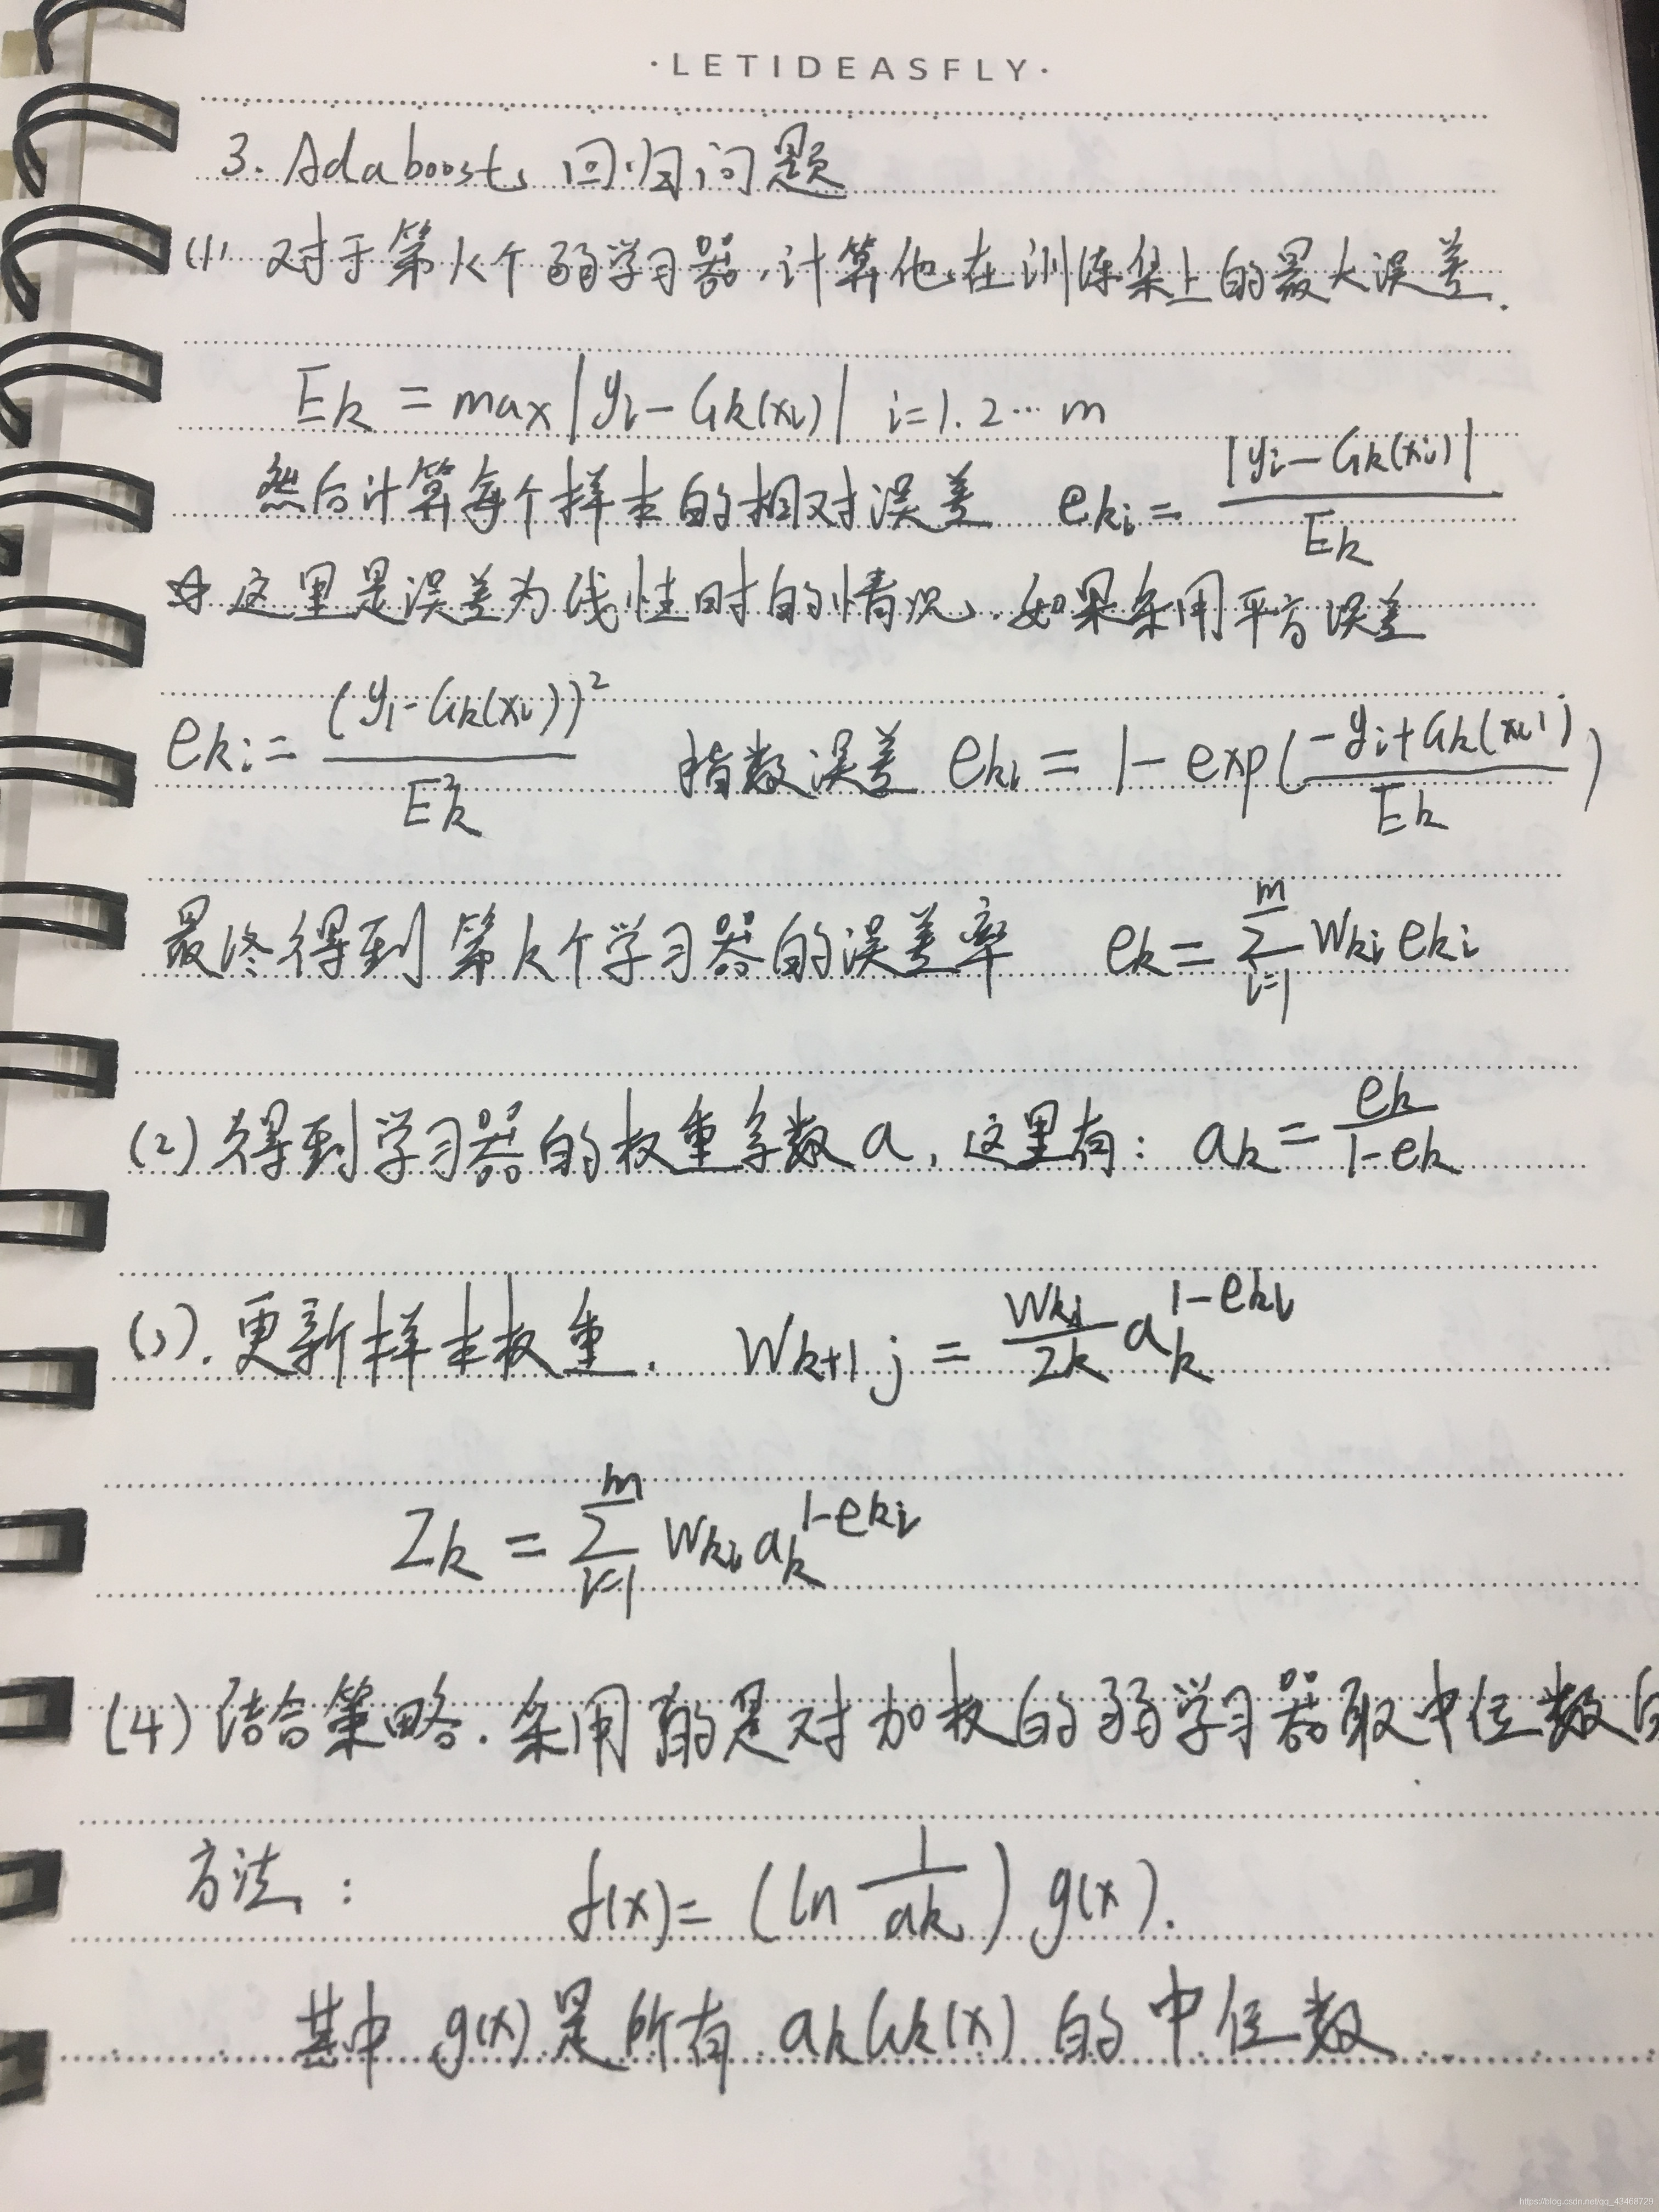 ·LETIDEASFLY·
3. Adaboost, 回归问题
(1) 对于第k个弱学习器,计算他在训练集上的最大误差.
Ek = max|yi-Gk(xi)| i=1.2…m
然后计算每个样本的相对误差 eki = |yi-Gk(xi)| / Ek
☆这里是误差为线性时的情况,.如果采用平方误差
eki = (yi-Gk(xi))² / E²k 指数误差 eki = 1-exp(-yi+Gk(xi) / Ek)
最终得到第k个学习器的误差率 ek = Σ(i=1→m) wki eki
(2)得到学习器的权重系数a,这里有: ak = ek / 1-ek
(3).更新样本权重. Wk+1 j = wki / Zk ak^1-eki
Zk = Σ(i=1→m) wki ak^1-eki
(4)结合策略.采用的是对加权的弱学习器取中位数的
方法: f(x)= (ln 1 / ak) g(x).
其中 g(x)是所有 akGk(x) 的中位数
https://blog.csdn.net/qq_43468729